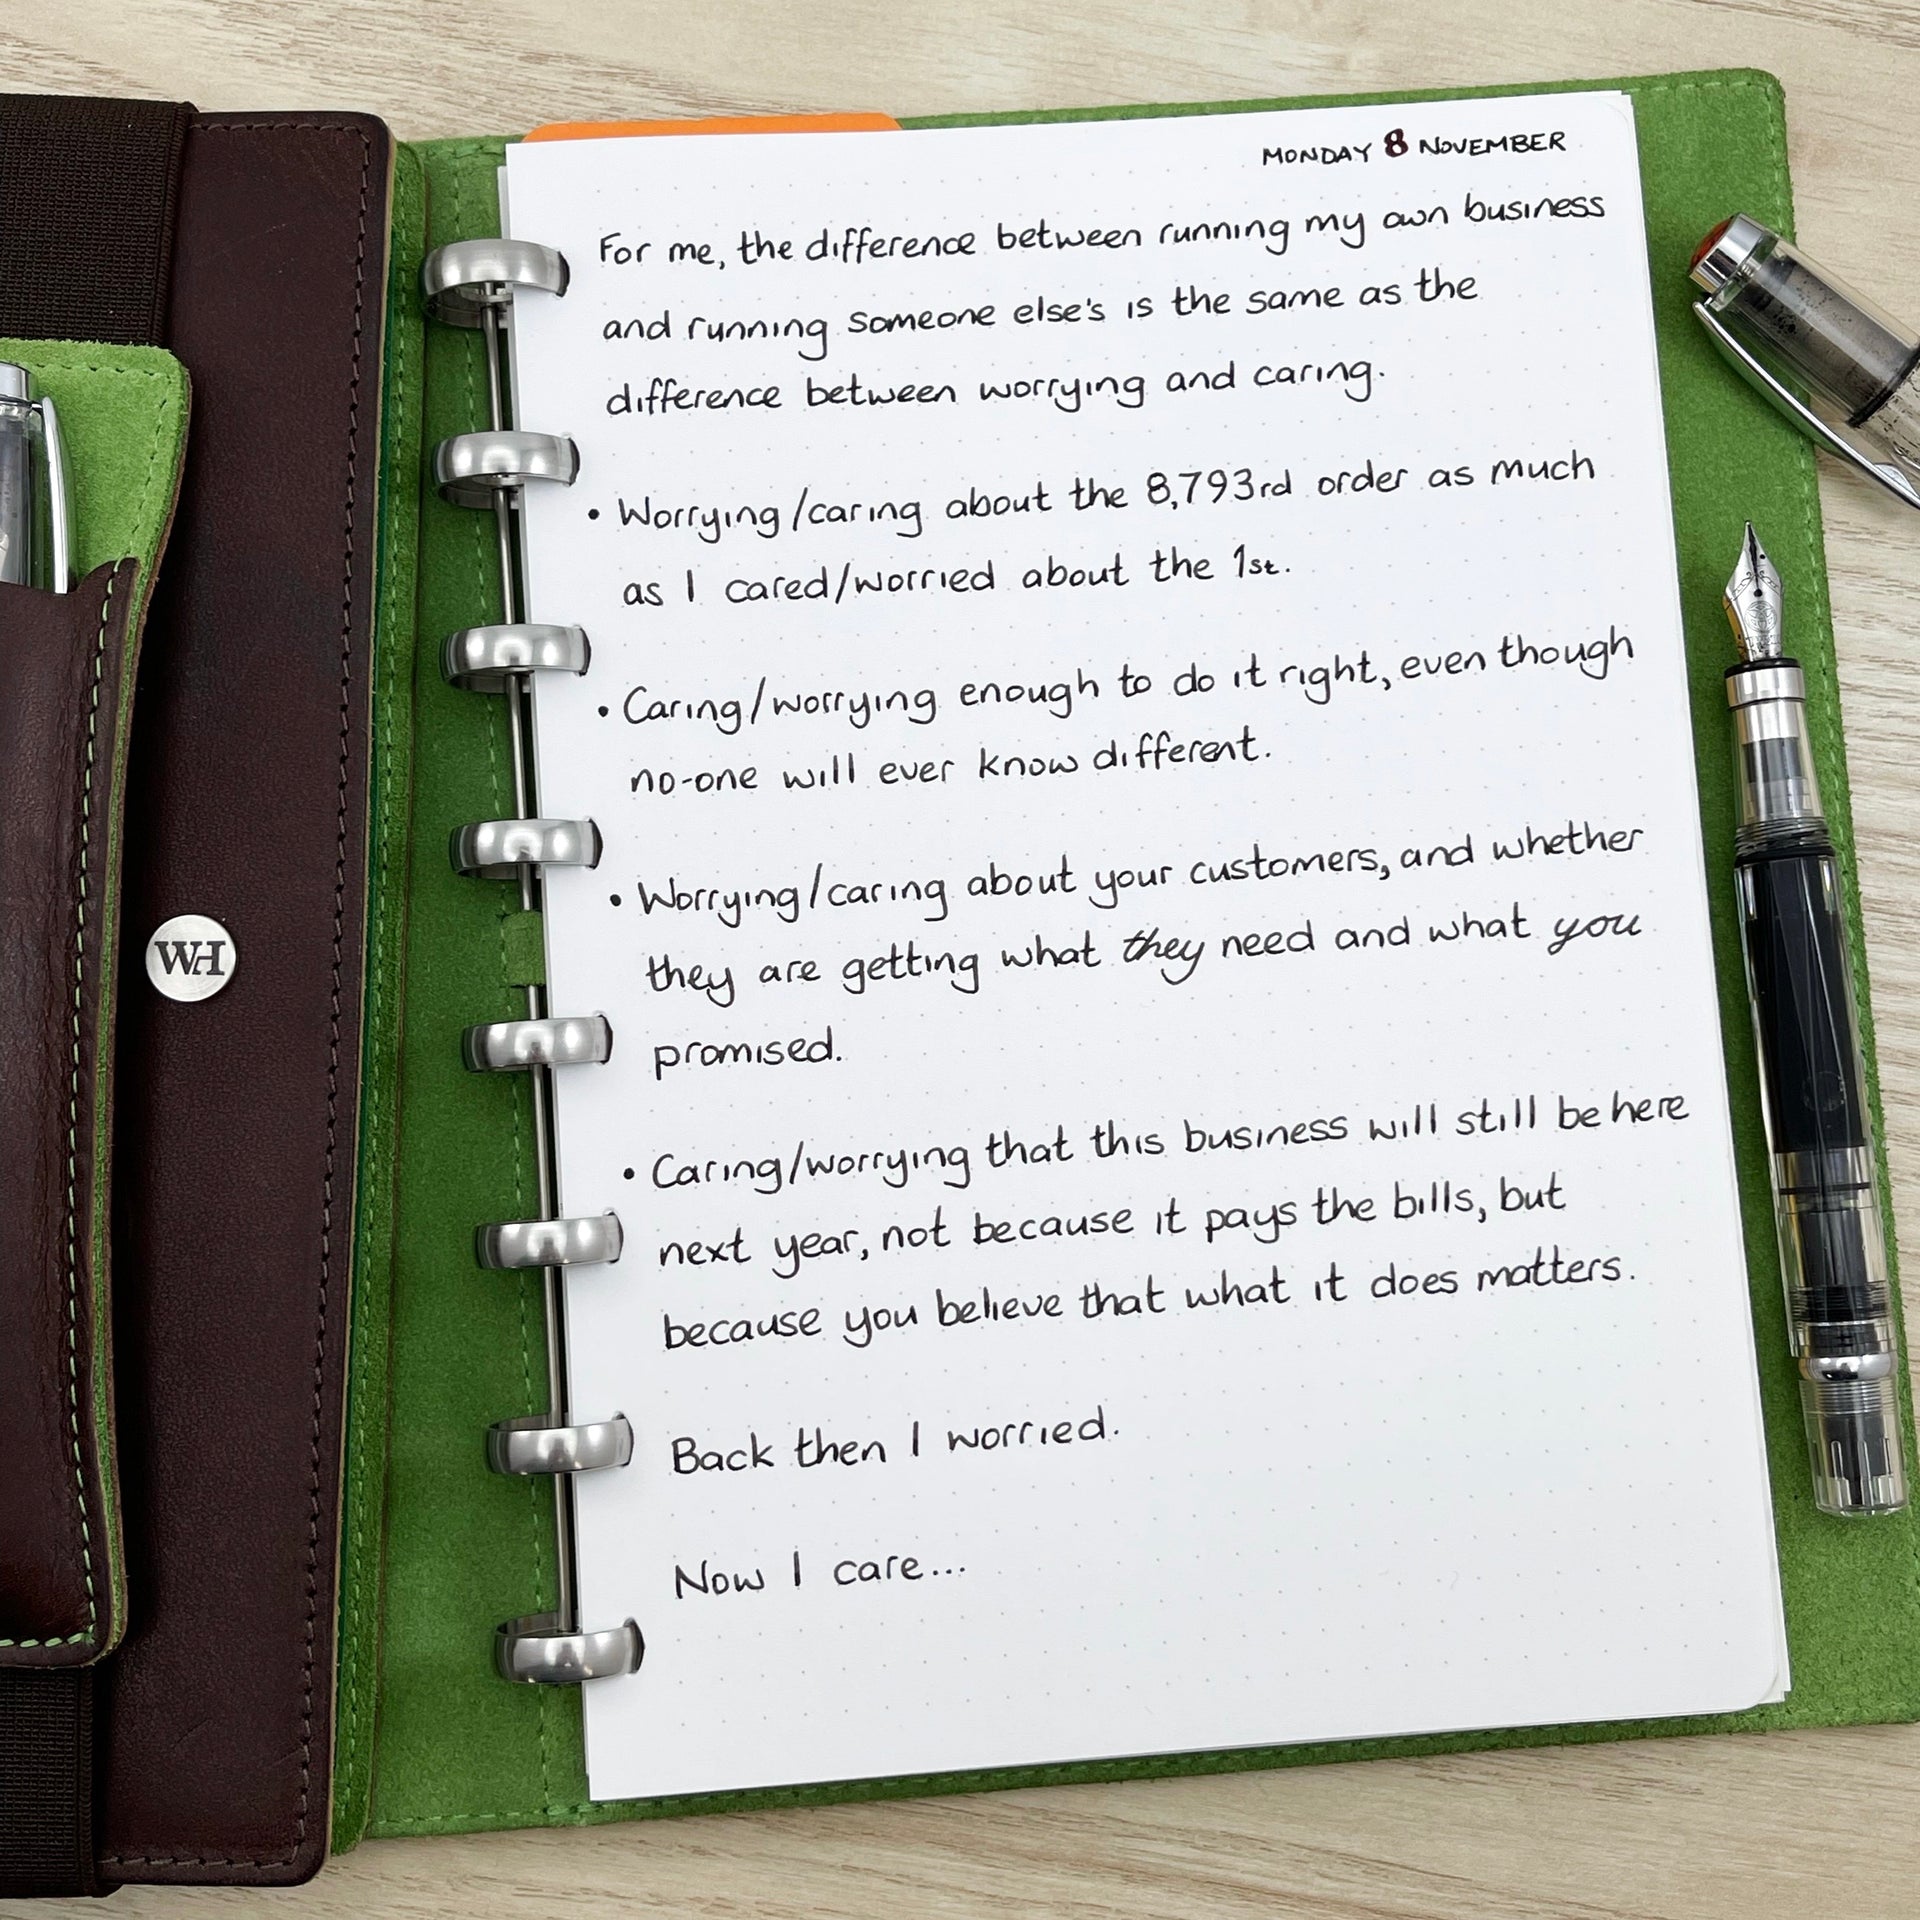 MONDAY 8 NOVEMBER
For me, the difference between running my own business
and running someone else's is the same as the
difference between worrying and caring.
• Worrying/caring about the 8,793rd order as much
as I cared/worried about the 1st.
• Caring/worrying enough to do it right, even though
no-one will ever know different.
• Worrying/caring about your customers, and whether
they are getting what they need and what you
promised.
• Caring/worrying that this business will still be here
next year, not because it pays the bills, but
because you believe that what it does matters.
Back then I worried.
Now I care...
WH